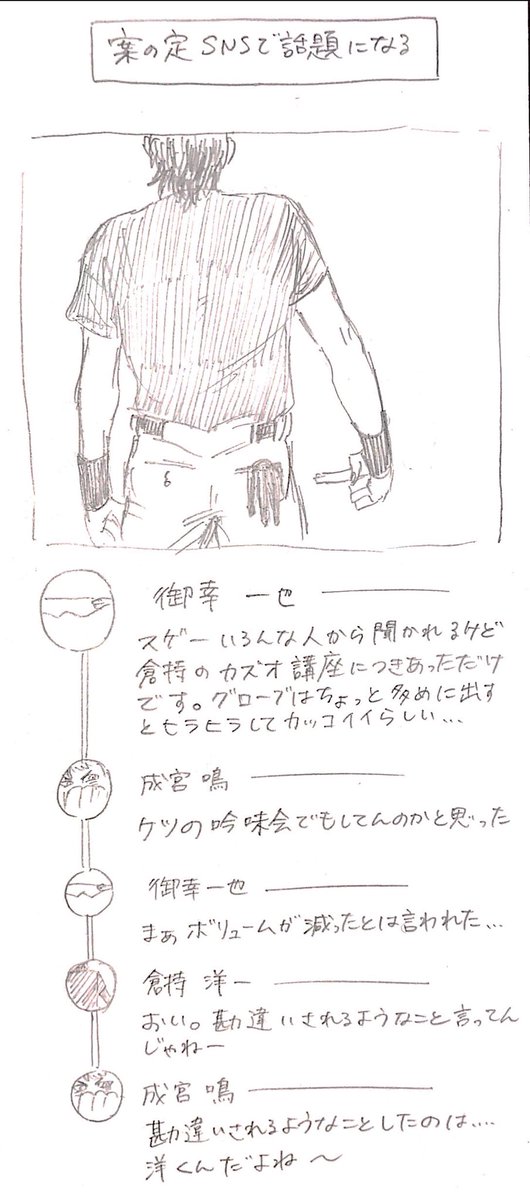 案の定SNSで話題になる
御幸 一也
スゲー いろんな人から聞かれるけど
倉持のカズオ講座につきあっただけ
です。グローブはちょっと多めに出す
とヒラヒラしてカッコイイらしい…
成宮 鳴
ケツの吟味会でもしてんのかと思った
御幸一也
まぁボリュームが減ったとは言われた…
倉持 洋一
おい。勘違いされるようなこと言ってん
じゃねー
成宮 鳴
勘違いされるようなことしたのは....
洋くんだよね〜